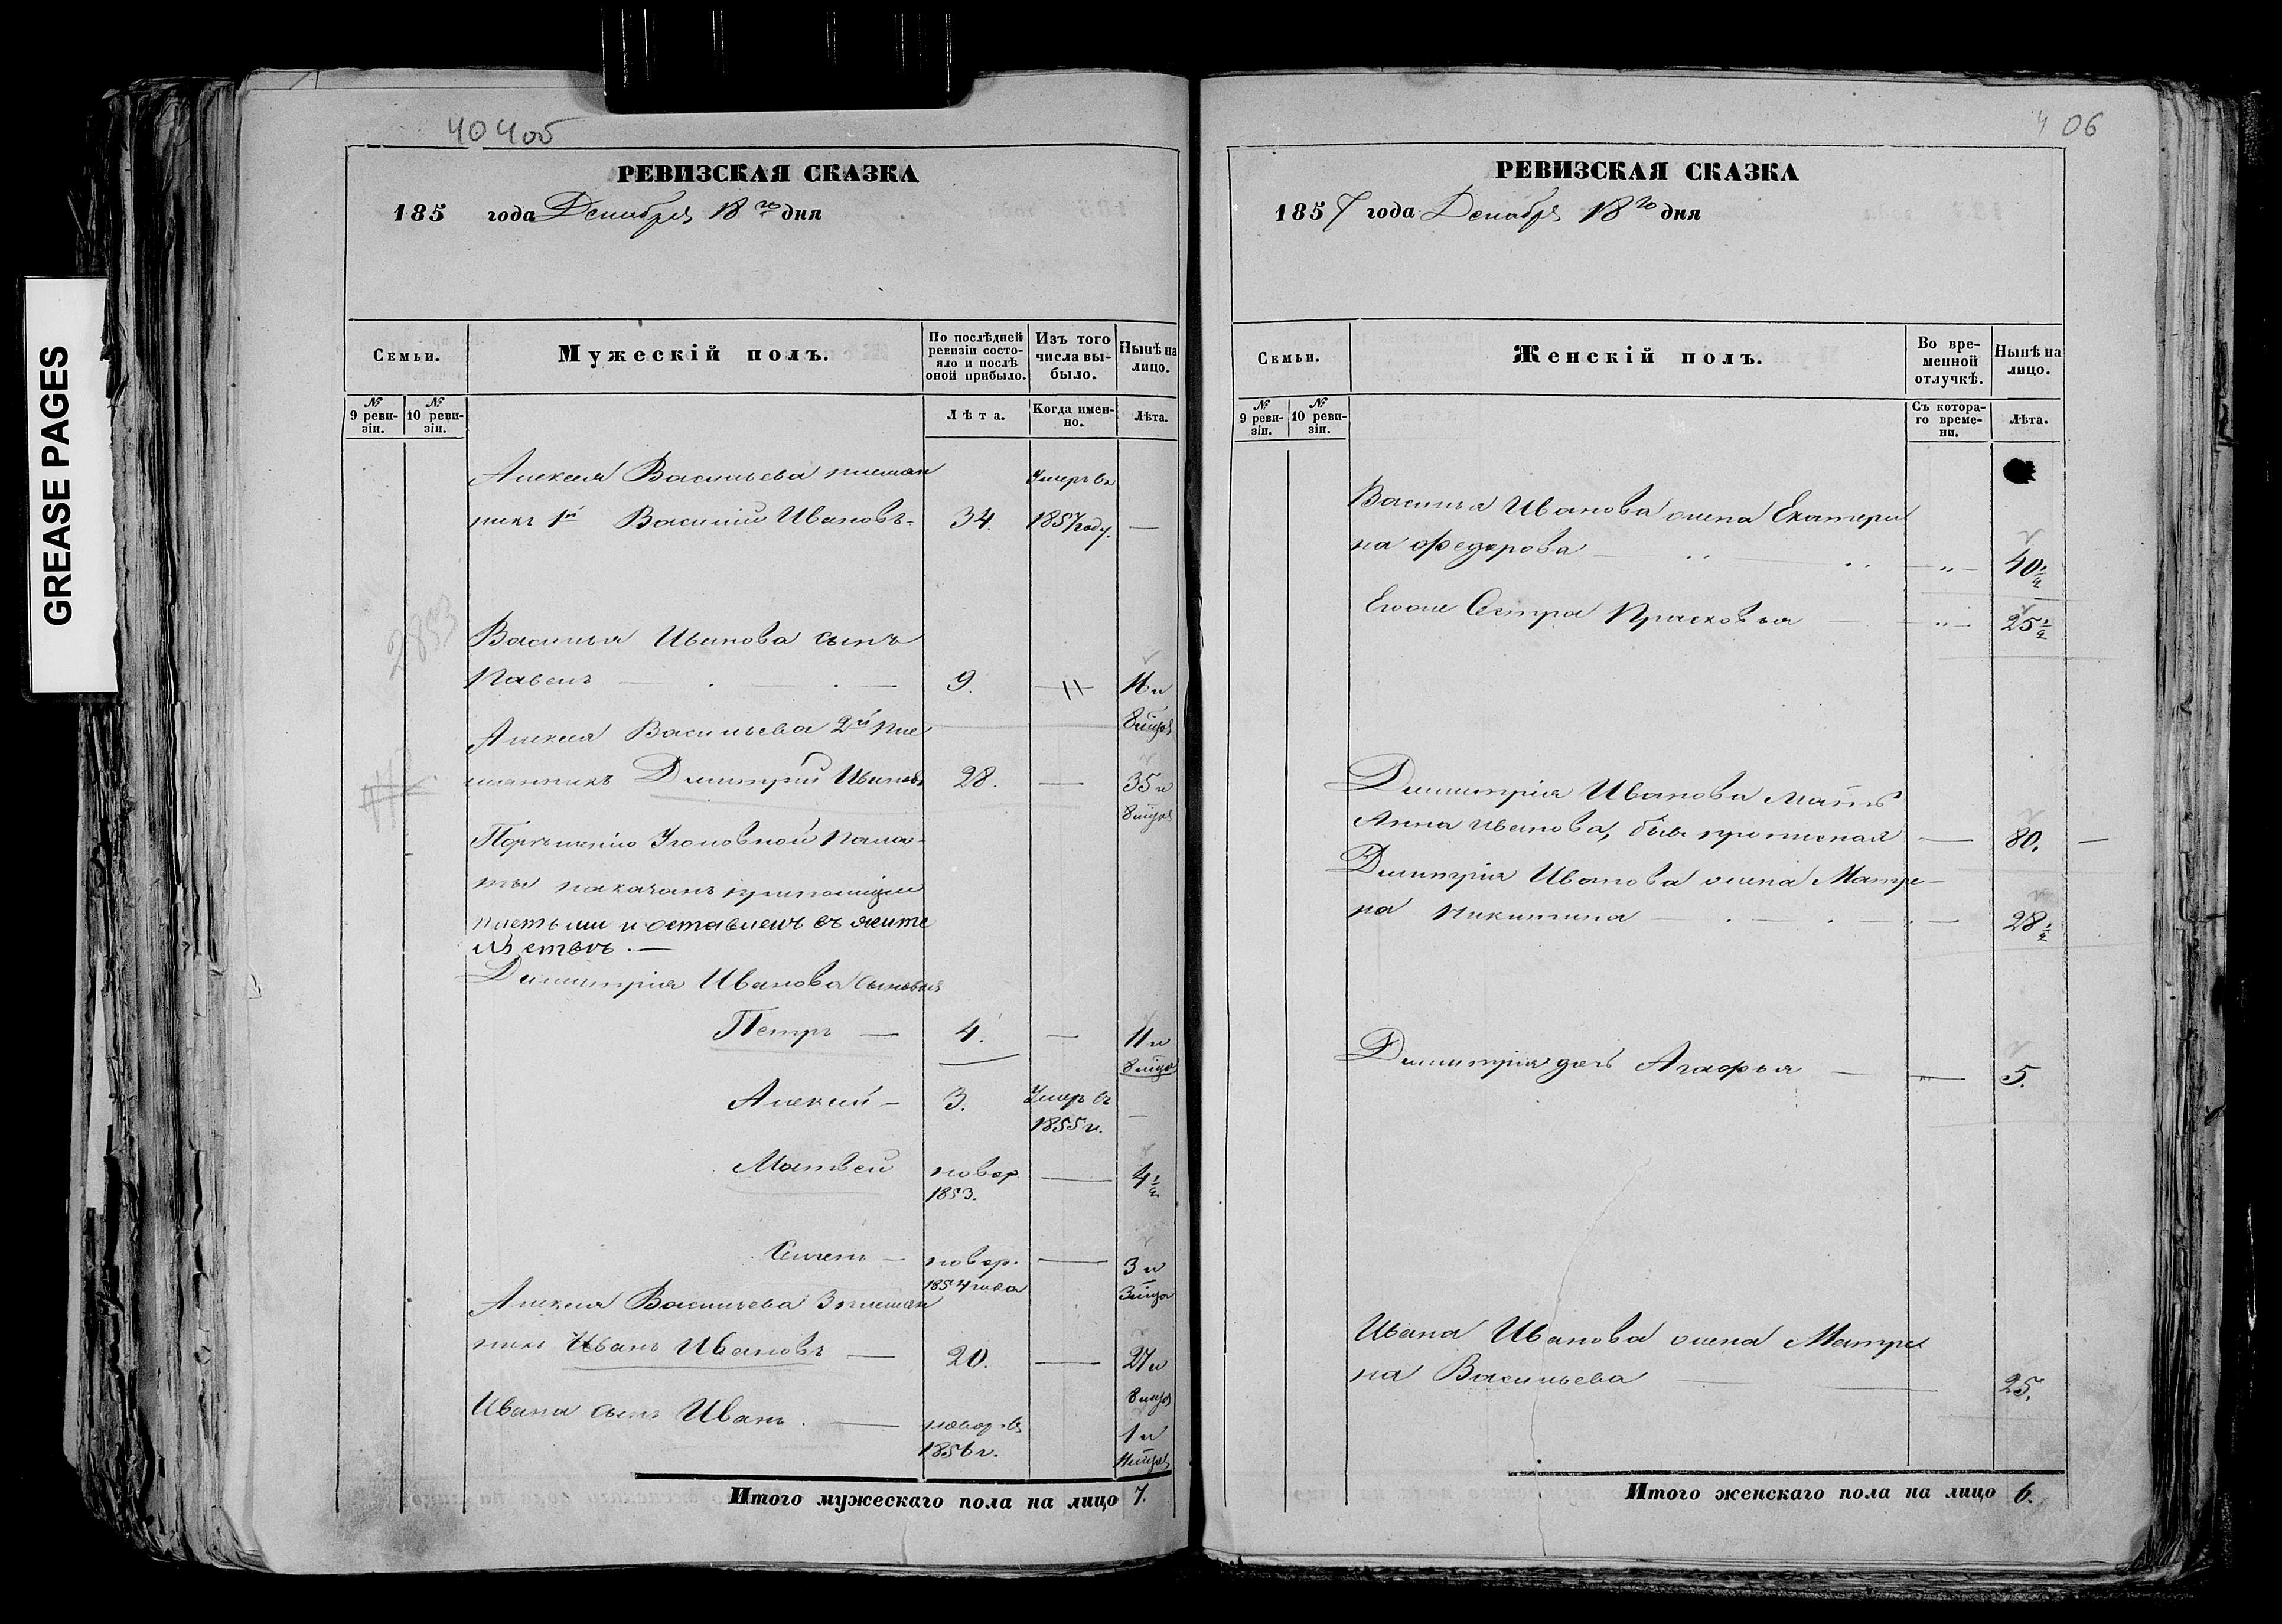 404об
РЕВИЗСКАЯ СКАЗКА
185 года Декабря 18го дня
Семьи.
Мужескій полъ.
По послѣдней ревизіи состояло и послѣ оной прибыло.
Изъ того числа выбыло.
Нынѣ на лицо.
№ 9 ревизіи.
№ 10 ревизіи.
Лѣта.
Когда именно.
Лѣта.
Алексея Васильева племян
никъ 1й Василий Ивановъ 34. Умеръ въ 1857 году. —
2853
Василья Иванова сынъ
Павелъ — 9. — 11 — 8 мцов
Алексея Васильева 2й пле
мянникъ Димитрий Иванов 28. — 35 и 8 мцов
По решению Уголовной Пала-
ты наказанъ
плетьми и оставленъ въ жите
льствъ. —
Димитрія Иванова сыновья
Петръ — 4. — 11 и 8 мцов
Алексий — 3. Умеръ въ 1855 г. —
Матвей новор. 1853. — 4 1/2
новор. 1854 года — 3 и 3 мца
Алексея Васильева 3 племян
никъ Иванъ Ивановъ — 20. — 27 и 8 мцов
Ивана сынъ Иванъ. — новор. въ 1856 г. 1 и мцов
Итого мужескаго пола на лицо 7.
406
РЕВИЗСКАЯ СКАЗКА
1857 года Декабря 18го дня
Семьи.
Женскій полъ.
Во временной отлучкѣ.
Нынѣ на лицо.
№ 9 ревизіи.
№ 10 ревизіи.
Съ котораго времени.
Лѣта.
Василья Иванова жена Екатери
на Федорова — „ — 40 1/2
Егоже Сестра Прасковья — „ — 25 1/2
Димитрія Иванова мать
Анна Иванова, была прописная — 80. —
Димитрія Иванова жена Матре-
на Никитина — 28 1/2
Димитрія дочь Агафья — 5.
Ивана Иванова жена Матре
на Васильева — 25.
Итого женскаго пола на лицо 6.
GREASE PAGES